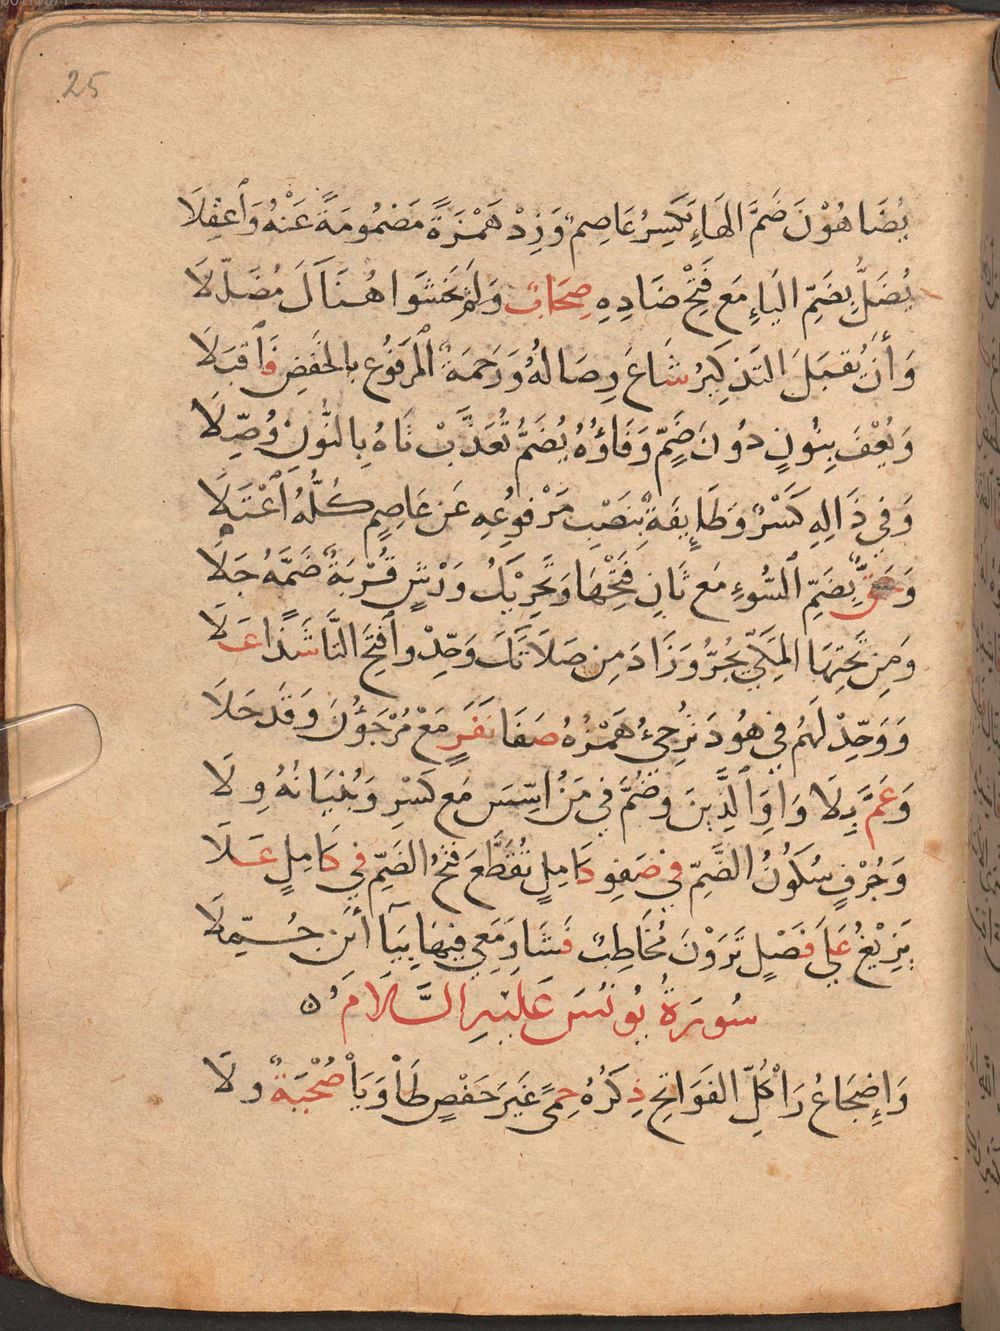 25
يُضَاهُوْنَ ضَمَّ الهَاءِ يَكْسِرُ عَاصِمٌ وَزِدْ هَمْزَةً مَضْمُومَةً عَنْهُ وَاعْقِلَا
يُضَلُّ بِضَمِّ اليَاءِ مَع فَتْحِ ضَادِهِ صِحَابٌ وَلَمْ يَخْشَوا هُنَاكَ مُضَلِّلَا
وَأَنْ يُقْبَلَ التَذكِيرُ شَاعَ وِصَالُهُ وَرَحمَةٌ المَرفُوعُ بِالخَفضِ فَاقبَلَا
وَيُعْفَ بِنُونٍ دُونَ ضَمٍّ وَفَاؤُهُ يُضَمُّ تُعَذَّبْ تَاهُ بِالنُّونِ وُصِّلَا
وَفي ذَالِهِ كَسْرٌ وَطَائِفَةٌ بِنَصْبِ مَرْفُوعِهِ عَن عَاصِمٍ كُلُّهُ اعْتَلَا
وَحَقٌّ بِضَمِّ السُّوءِ مَع ثَانِ فَتْحِهَا وَتَحرِيْكُ وَرْشٍ قُرْبَةٌ ضَمُّهُ جَلَا
وَمِن تَحتِهَا المَكِّي يَجُرُّ وَزَادَ مِن صَلَاتَكَ وَحِّدْ وافتَحِ التَّا شَذًا عَلَا
وَوَحِّدْ لَهُم في هُودَ تُرجِيءُ هَمْزُهُ صَفَا نَفَرٍ مَعْ مُرْجَؤُنَ وَقَد حَلَا
وَعَمَّ بِلَا وَاوِ الَّذِينَ وَضُمَّ في مَنُ اسِّسَ مَع كَسْرٍ وَبُنيَانُهُ وِلَا
وَجُرْفٍ سُكُونُ الضَّمِّ في صَفوِ كَامِلٍ تُقَطَّعَ فَتحُ الضَمِّ في كَامِلٍ عَلَا
يَزِيْغُ عَلَى فَصْلٍ تَرَوْنَ مُخَاطِبٌ فَشَا وَمَعِي فِيهَا بِيَاأَينِ جُمِّلَا
سُورَةُ يُونُسَ عَلَيْهِ السَّلَامُ
وَإِضجَاعُ رَا كُلِّ الفَوَاتِحِ ذِكرُهُ حِمىً غَيرَ حَفْصٍ طَا وَيَا صُحْبَةٌ وِلَا